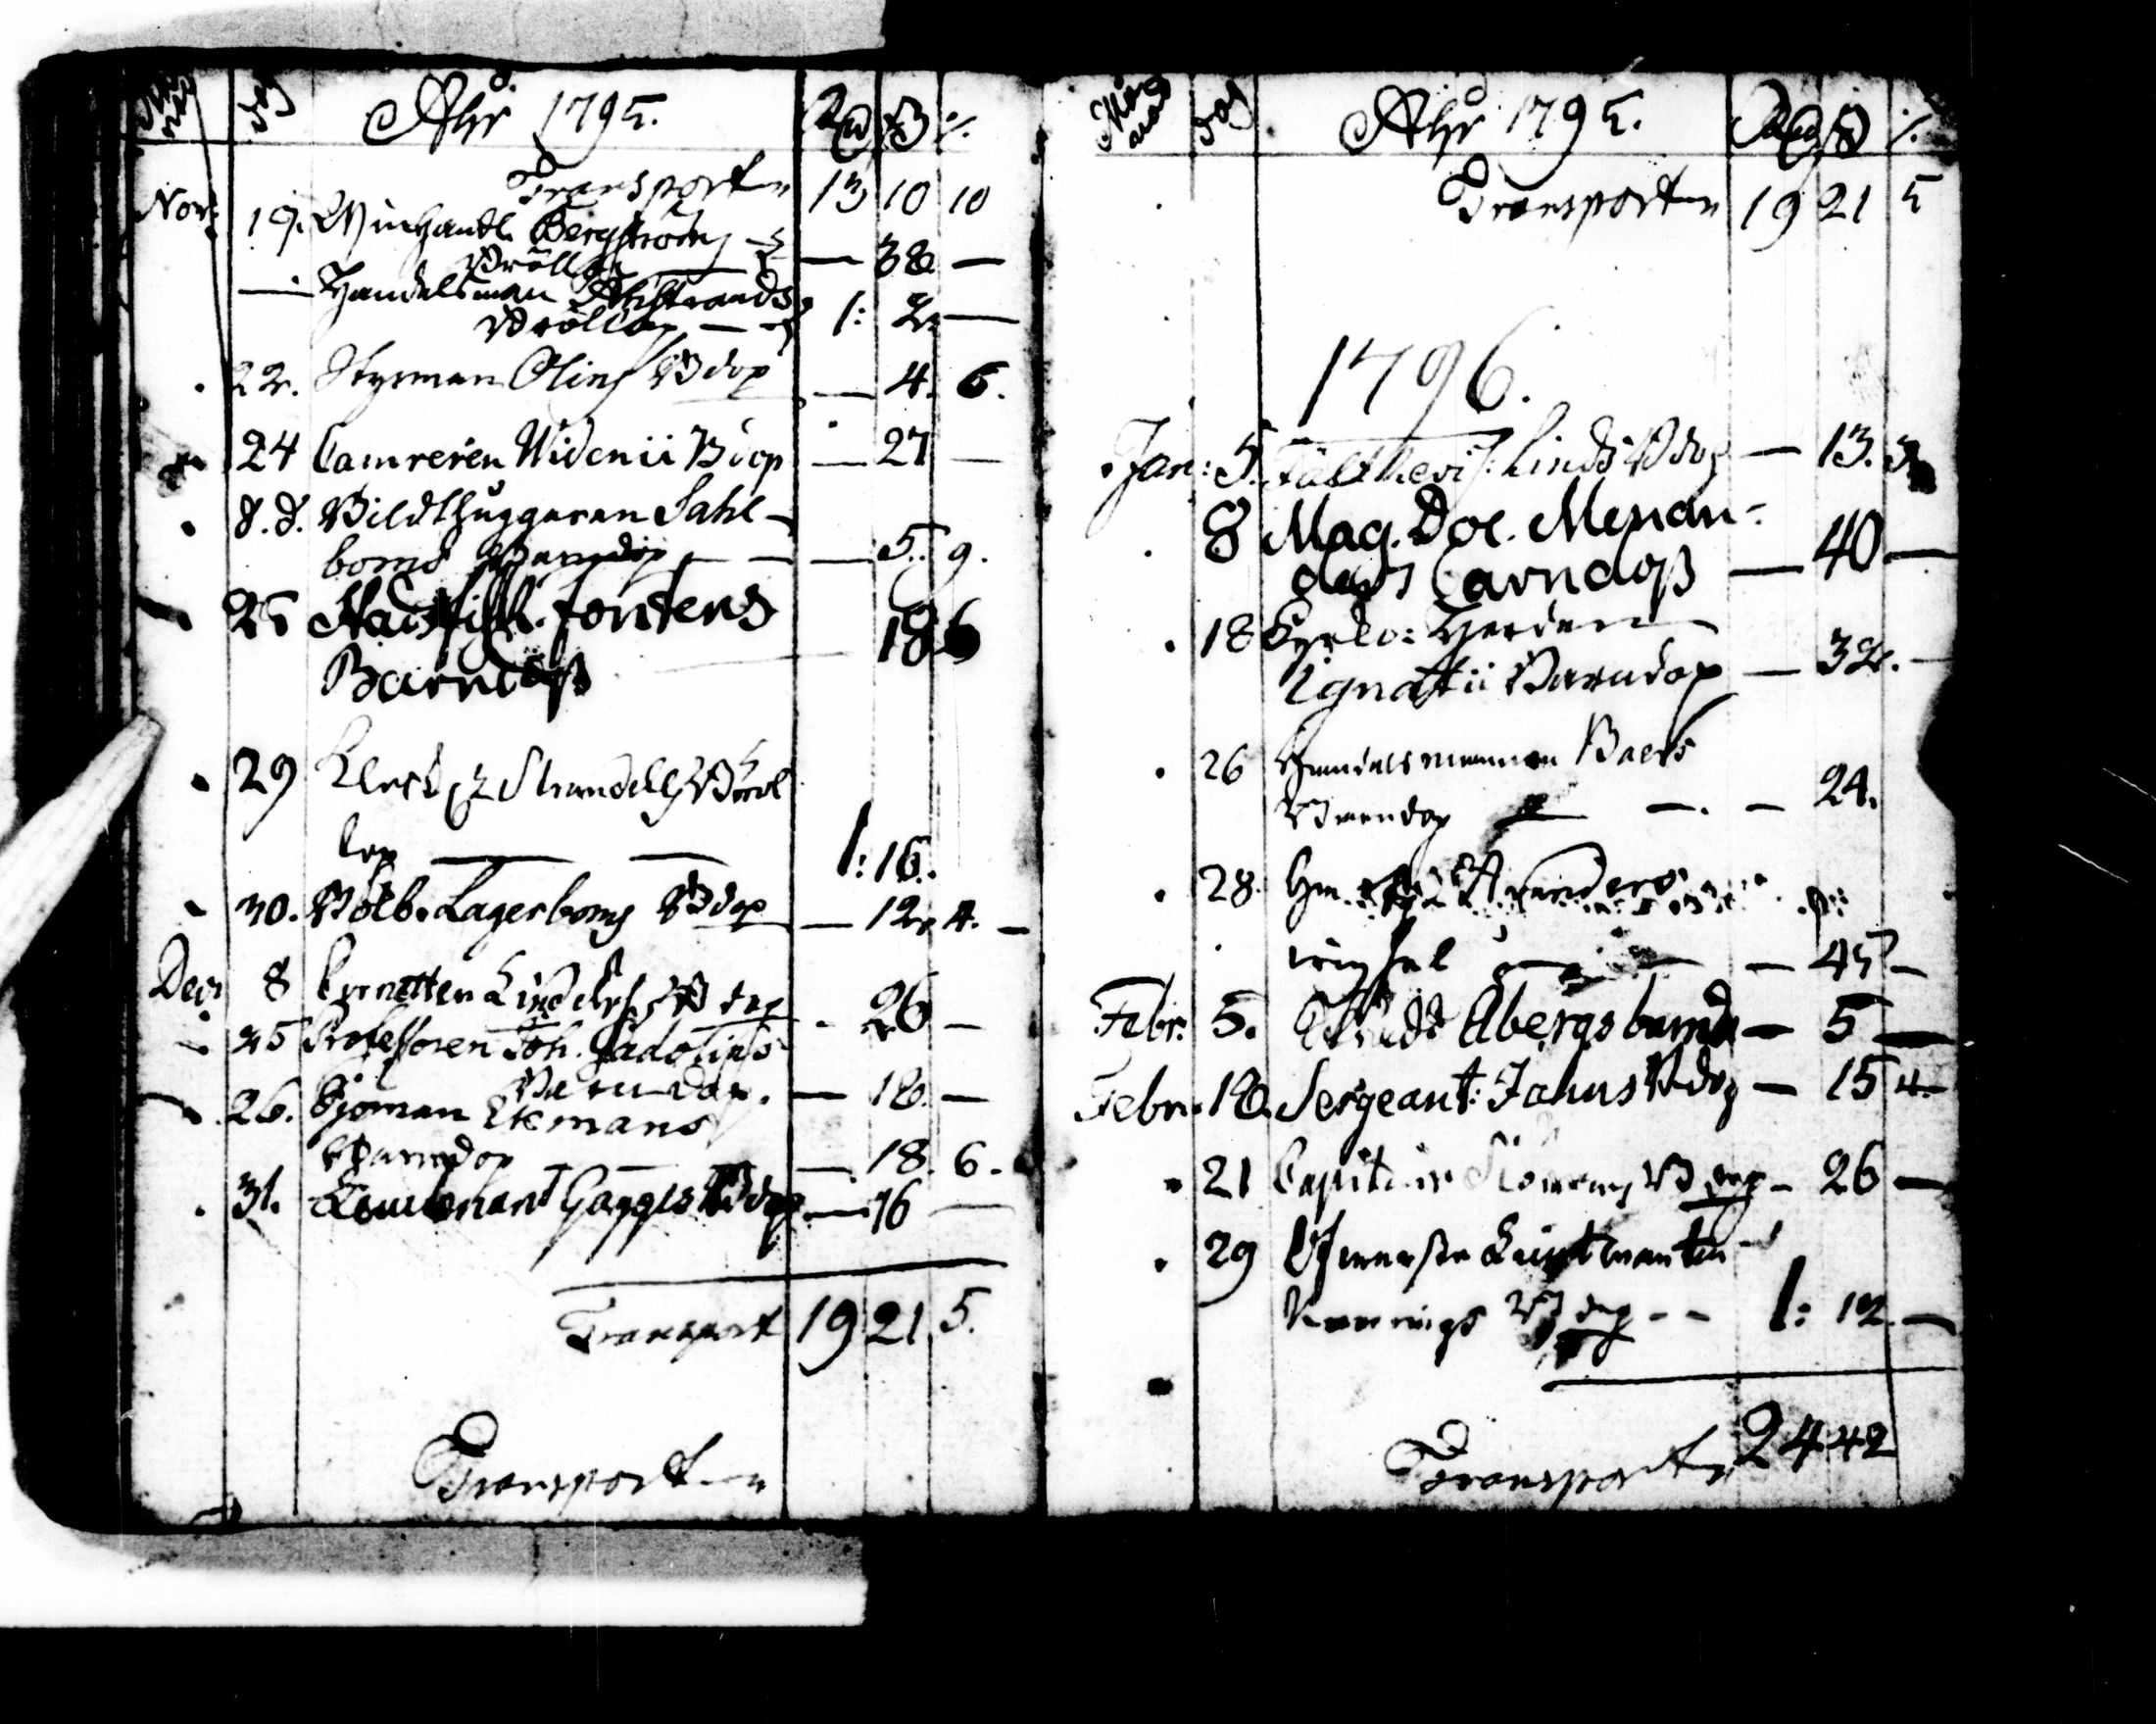 Åhr 1795.
Transporten 13 10 10
Nov: 19. Winhandl. Bergströms
Bröllop — 38 —
— Handelsman Ahlstrands
Bröllop — 1: 2 —
22. Styrman Olins Bdop — 4. 6.
24 Camreren Widenii Bdop — 27 —
d. d. Bildthuggaren Sahl-
boms Barndop — — 5. 9.
25 Jontens 18 6
Barndop
29 Strandells Bröl
lop — — 1: 16.
30. Lagerboms Bdop — 12. 4. —
Dec: 8 Bdop - 26 —
25 Professoren Joh. Gadolins
Barndop. — 18. —
26. Sjöman Ekmans
Barndop — — 18. 6.
31. Leutenant Gagges Bdop — 16 —
Transport 19 21. 5.
Transporten
Åhr 1795.
Transporten 19 21 5
1796.
Jan: 5. Linds Bdop — 13.
8 Mag. Doc. Menan-
ders Barndop — 40 —
18 Kyrko: Herden
Ignatii Barndop — 32. —
26 Handelsmannen Baers
Barndop — — 24.
28.
— — — 45 —
Febr: 5. Åbergs barnd — 5 —
Febr. 18. Sergeant: Jahns Bdop — 15 4
21 Capitain Bdop — 26 —
29 Öfwerste Leutnanten
Bdop - - 1: 12 —
Transporten 24 42